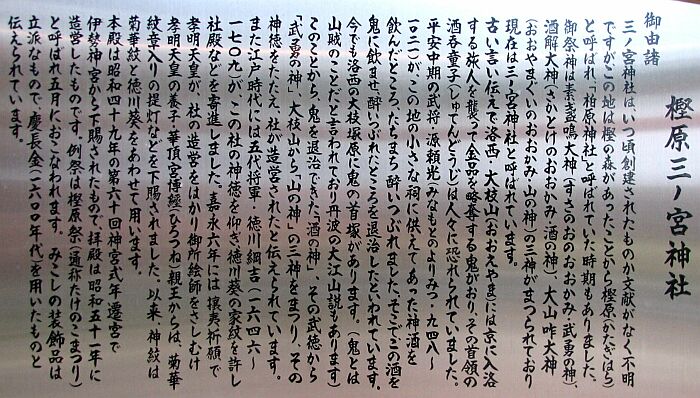 樫原三ノ宮神社
御由諸
三ノ宮神社は、いつ頃創建されたものか文献がなく、不明
ですが、この地は樫の森があったことから樫原(かたぎはら)
と呼ばれ、「柏原神社」と呼ばれていた時期もありました。
御祭神は素盞鳴大神(すさのおのおおかみ・武勇の神)、
酒解大神(さかとけのおおかみ・酒の神)、大山咋大神
(おおやまぐいのおおかみ・山の神)の三神がまつられており
現在は三ノ宮神社と呼ばれています。
古い言い伝えで洛西・大枝山(おおえやま)には京に入洛
する旅人を襲って金品を略奪する鬼がおり、その首領の
酒呑童子(しゅてんどうじ)は人々に恐れられていました。
平安中期の武将・源頼光(みなもとのよりみつ・九四八〜
一〇二一)が、この地の小さな祠に供えてあった神酒を
飲んだところ、たちまち酔いつぶれました。そこでこの酒を
鬼に飲ませ、酔いつぶれたところを退治したといわれています。
今でも洛西の大枝塚原に鬼の首塚があります。(鬼とは
山賊のことだと言われており丹波の大江山説もあります)
このことから、鬼を退治できた「酒の神」、その武徳から
「武勇の神」、大枝山から「山の神」の三神をまつり、その
神徳をたたえ、社が造営されたと伝えられています。
また江戸時代には五代将軍・徳川綱吉(一六四六〜
一七〇九)が、この社の神徳を仰ぎ徳川葵の家紋を許し
社殿などを寄進しました。嘉永六年には、攘夷祈願で
孝明天皇が、社の造営をはかり御所絵師をさしむけ
孝明天皇の養子・華頂宮博経(ひろつね)親王からは、菊華
紋章入りの提灯などを下賜されました。以来、神紋は
菊華紋と徳川葵をあわせて用います。
本殿は昭和四十九年の第六十回神宮式年遷宮で
伊勢神宮から下賜されたもので、拝殿は昭和五十一年に
造営したものです。例祭は樫原祭(通称たけのこまつり)
と呼ばれ五月におこなわれます。みこしの装飾品は
立派なもので、慶長金(一六〇〇年代)を用いたものと
伝えられています。